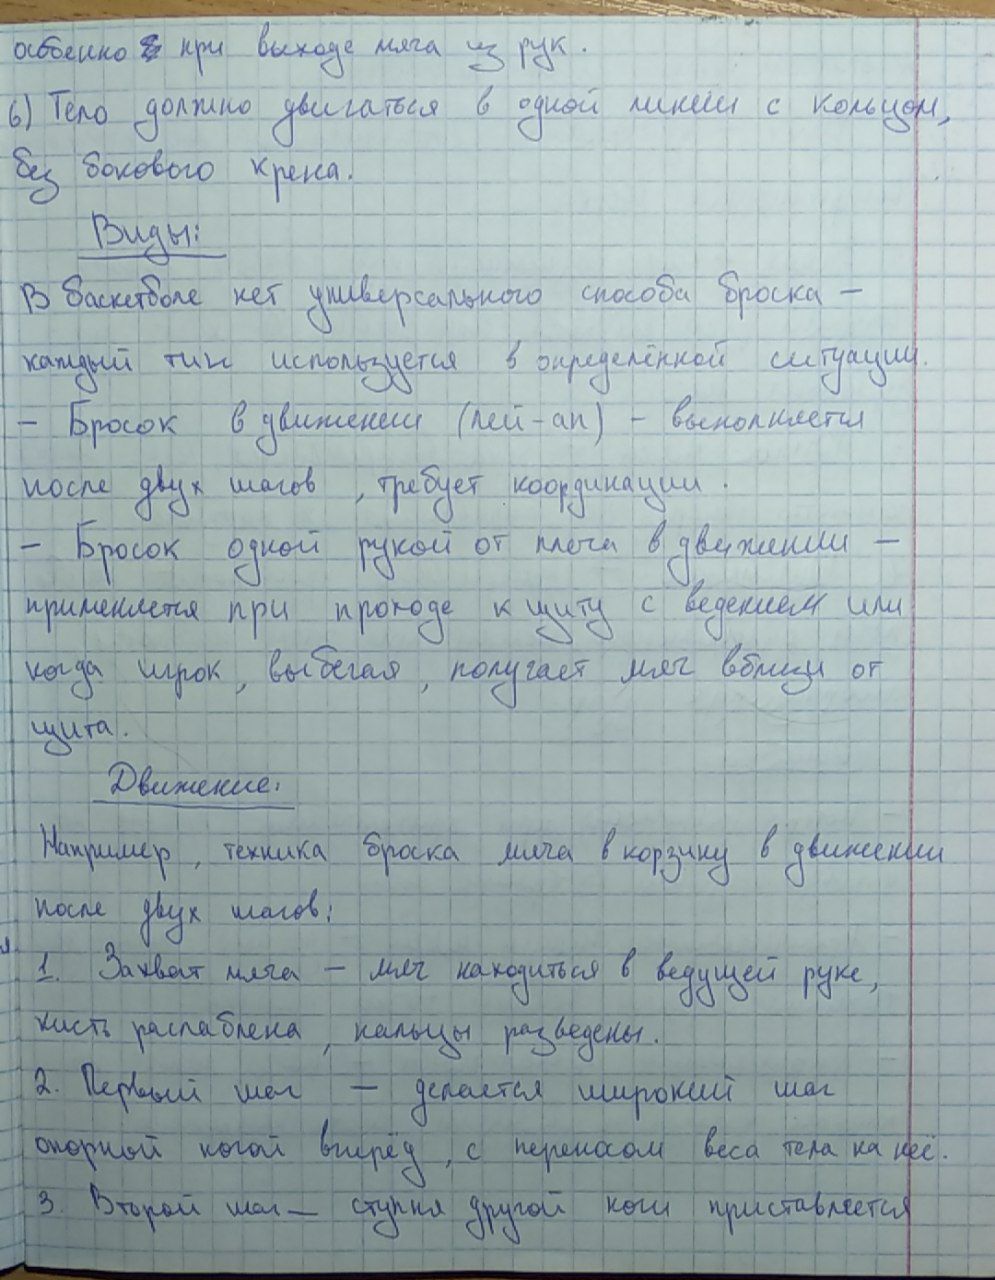 особенно при выходе мяча из рук.
6) Тело должно двигаться в одной линии с кольцом,
без бокового крена.
Виды:
В баскетболе нет универсального способа броска –
каждый тип используется в определённой ситуации.
– Бросок в движении (лей-ап) – выполняется
после двух шагов, требует координации.
– Бросок одной рукой от плеча в движении –
применяется при проходе к щиту с ведением или
когда игрок, выбегая, получает мяч вблизи от
щита.
Движение:
Например, техника броска мяча в корзину в движении
после двух шагов:
я
1. Захват мяча – мяч находиться в ведущей руке,
кисть расслаблена, пальцы разведены.
2. Первый шаг – делается широкий шаг
опорной ногой вперёд, с переносом веса тела на неё.
3. Второй шаг – ступня другой ноги приставляется